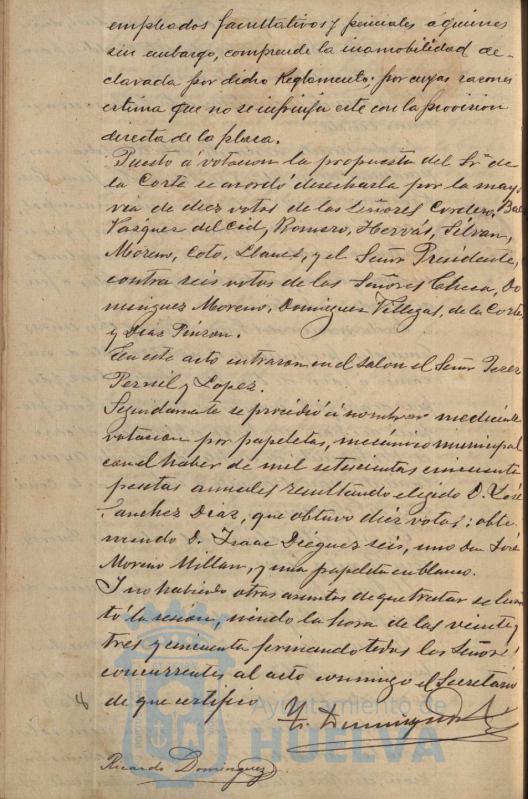 empleados facultativos y periciales á quienes
sin embargo, comprende la inamobilidad de-
clarada por dicho Reglamento. por cuyas razones
estima que no se infrinja este con la provision
directa de la plaza.
Puesto á votacion la propuesta del Sr. de
la Corte se acordó desecharla por la mayo
ria de diez votos de los Señores Cordero,
Vazquez del Cid, Romero, Hervás, Selvan,
Moreno, Coto, Llanes, y el Señor Presidente,
contra seis votos de los Señores Checa, Do
minguez Moreno, Dominguez Villegas, de la Corte
y Diaz Pinzon.
En este acto entraron en el salon el Señor Perez
y Lopez.
Seguidamente se procedió á nombrar mediante
votacion por papeletas, mecánico municipal
con el haber de mil setescientas cincuenta
pesetas anuales resultando elegido D. José
Sanchez Diaz, que obtuvo diez votos; obte
niendo D. Isaac Diéguez seis, uno Don José
Moreno Millan, y una papeleta en blanco.
Y no habiendo otros asuntos de que tratar se levan
tó la sesión, siendo la hora de las veinte y
tres y cincuenta firmando todos los Señores
concurrentes al acto conmigo el Secretario
de que certifico
Ayuntamiento de
HUELVA
Ricardo Dominguez